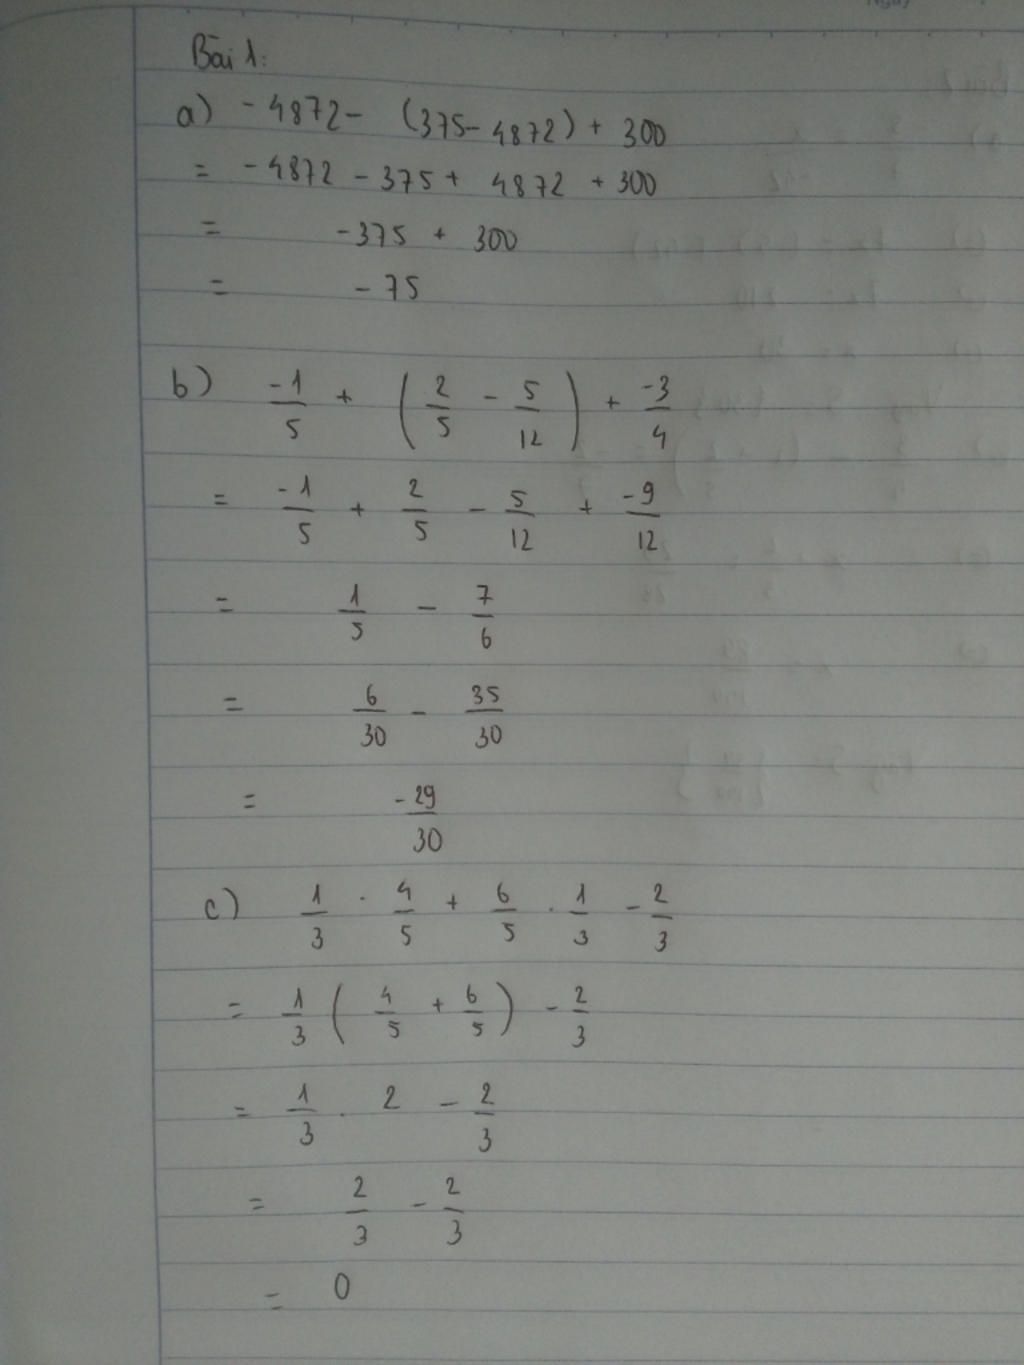 Bài 1:
a) -4872 - (375 - 4872) + 300
= -4872 - 375 + 4872 + 300
= -375 + 300
= -75
b) -1/5 + (2/5 - 5/12) + -3/4
= -1/5 + 2/5 - 5/12 + -9/12
= 1/5 - 7/6
= 6/30 - 35/30
= -29/30
c) 1/3 . 4/5 + 6/5 . 1/3 - 2/3
= 1/3 (4/5 + 6/5) - 2/3
= 1/3 . 2 - 2/3
= 2/3 - 2/3
= 0